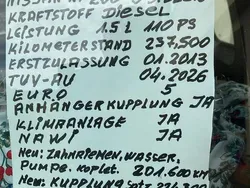 KRAFTSTOFF Diesel
LEISTUNG 1.5 L 110 PS
KILOMETERSTAND 237,500
ERSTZULASSUNG 01.2013
TÜV-AU 04.2026
EURO 5
ANHÄNGERKUPPLUNG JA
KLIMAANLAGE JA
NAWI JA
Neu: ZAHNRIEMEN, WASSER,
PUMPE. KOPLET. 201.600 KM
Neu: KUPPLUNG